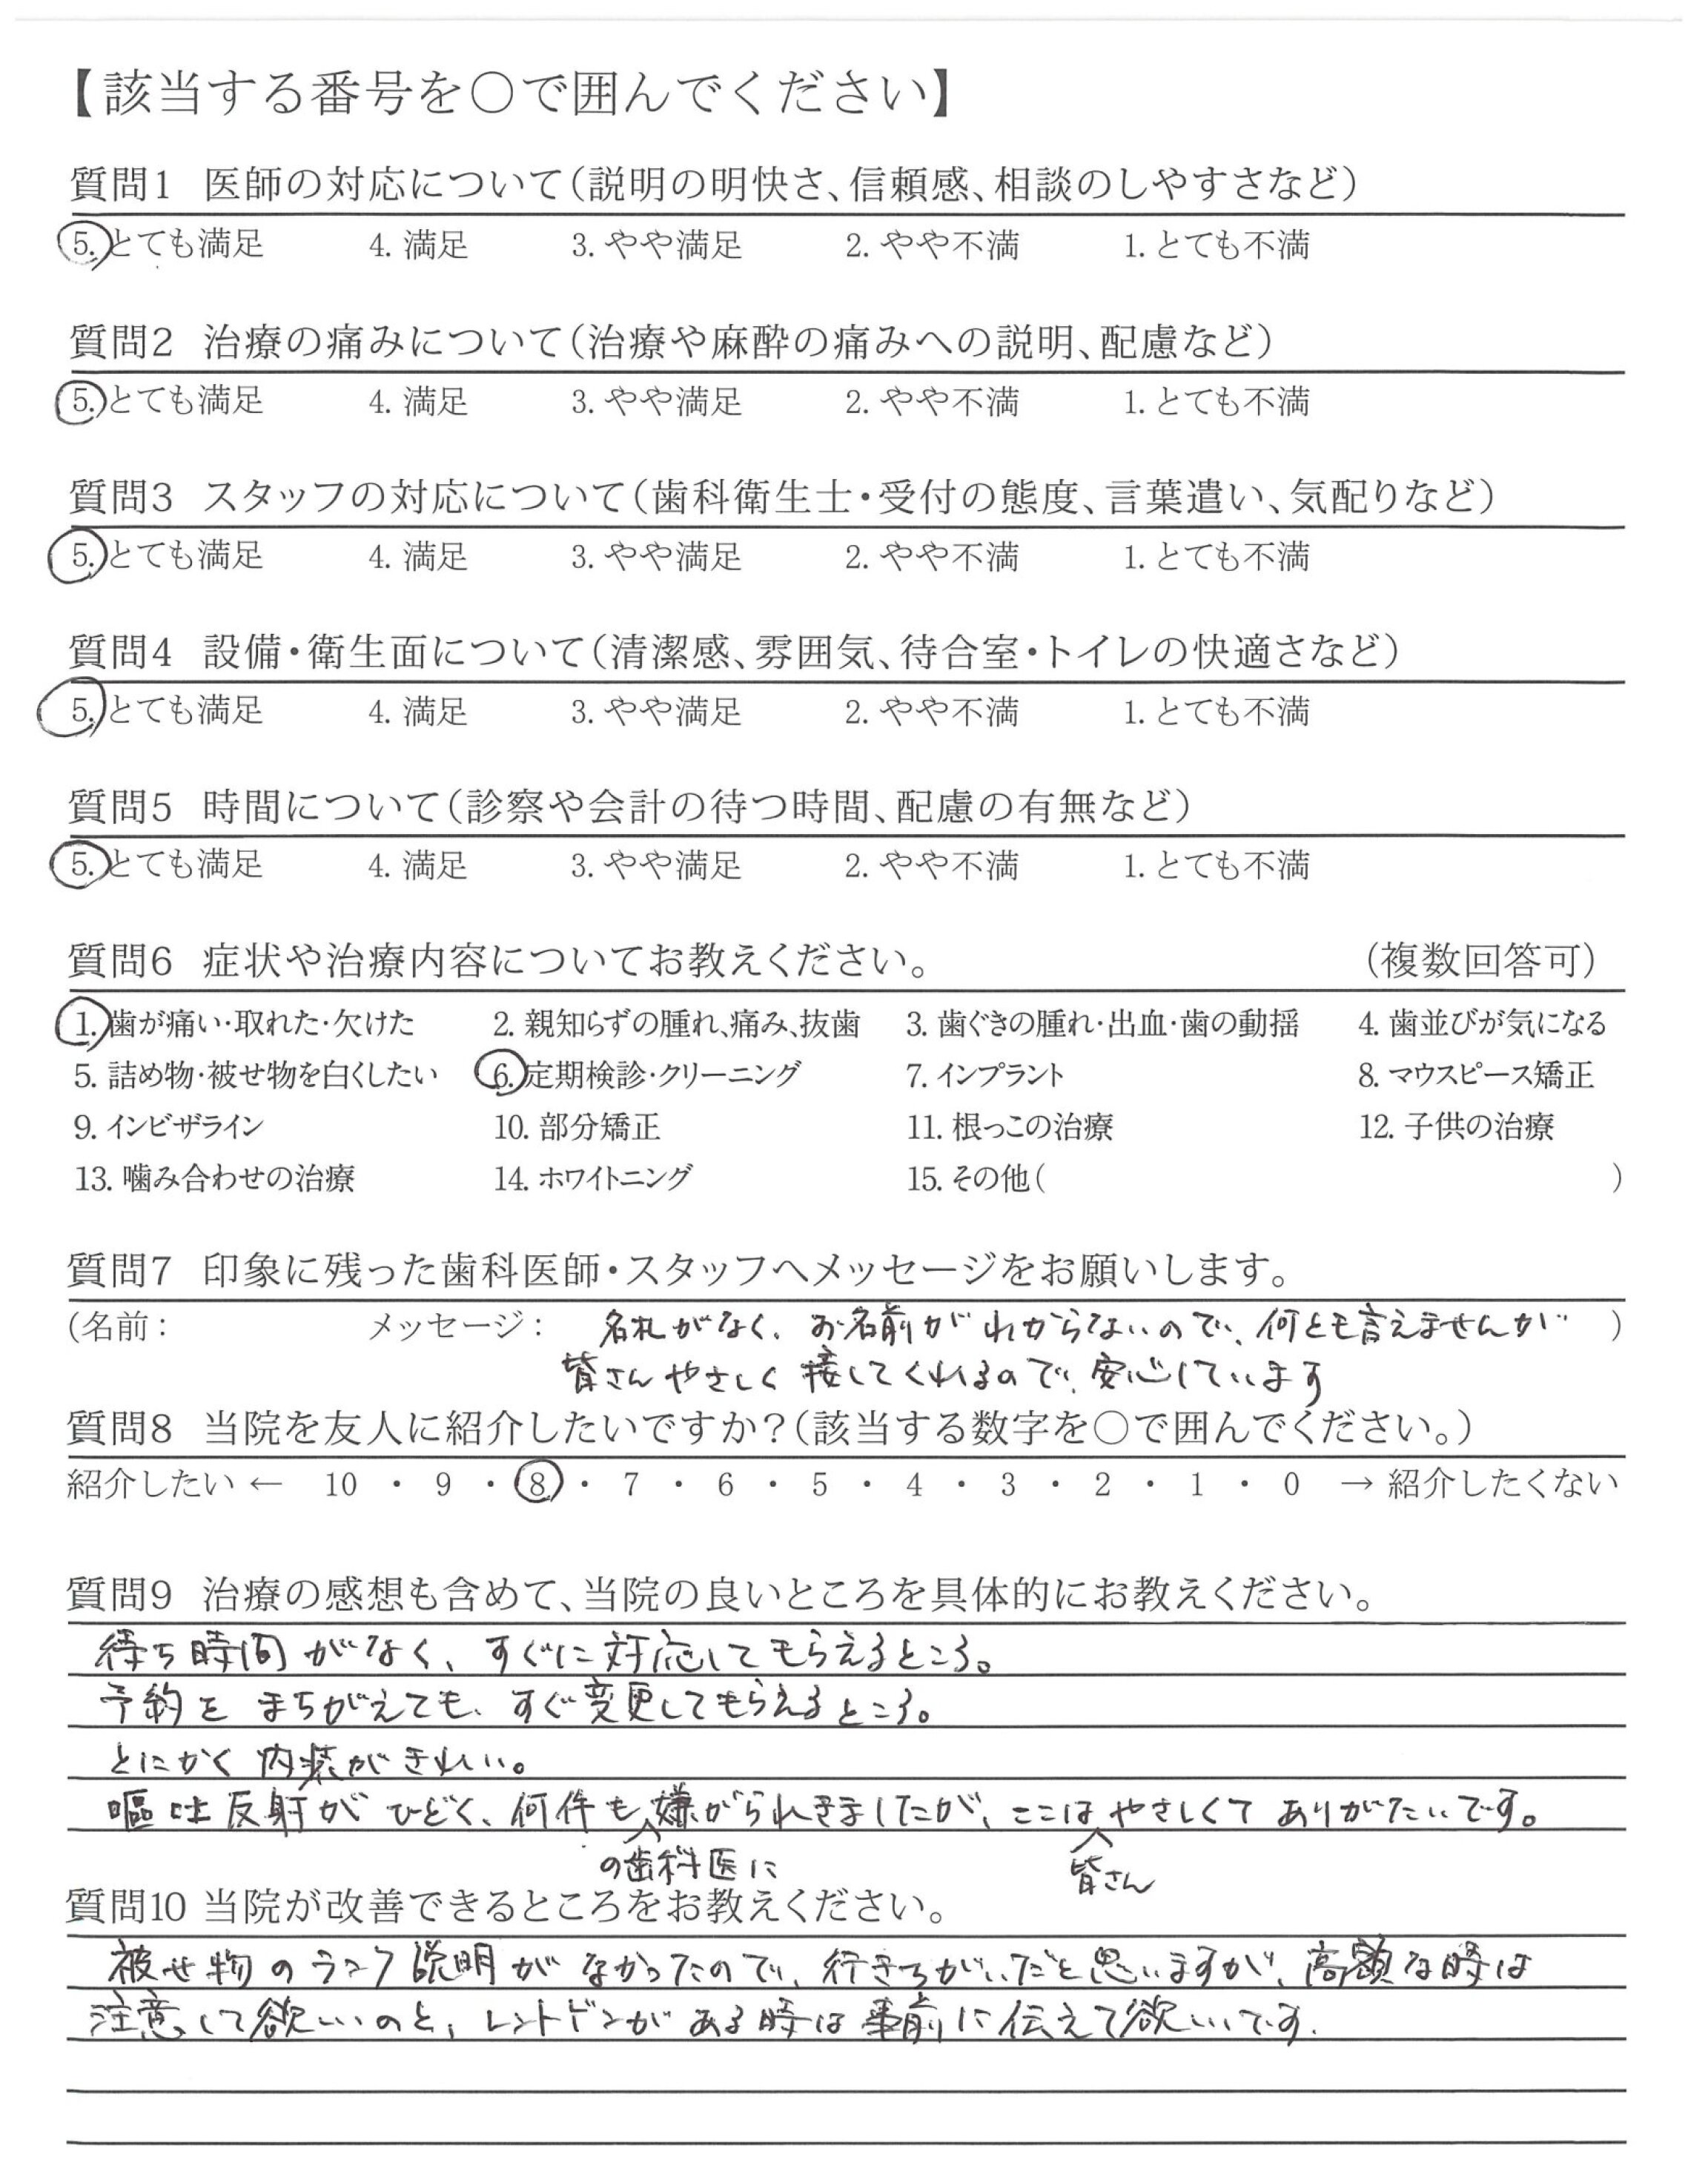 【該当する番号を○で囲んでください】
質問1 医師の対応について(説明の明快さ、信頼感、相談のしやすさなど)
5. とても満足 4. 満足 3. やや満足 2. やや不満 1. とても不満
質問2 治療の痛みについて(治療や麻酔の痛みへの説明、配慮など)
5. とても満足 4. 満足 3. やや満足 2. やや不満 1. とても不満
質問3 スタッフの対応について(歯科衛生士・受付の態度、言葉遣い、気配りなど)
5. とても満足 4. 満足 3. やや満足 2. やや不満 1. とても不満
質問4 設備・衛生面について(清潔感、雰囲気、待合室・トイレの快適さなど)
5. とても満足 4. 満足 3. やや満足 2. やや不満 1. とても不満
質問5 時間について(診察や会計の待つ時間、配慮の有無など)
5. とても満足 4. 満足 3. やや満足 2. やや不満 1. とても不満
質問6 症状や治療内容についてお教えください。 (複数回答可)
1. 歯が痛い・取れた・欠けた 2. 親知らずの腫れ、痛み、抜歯 3. 歯ぐきの腫れ・出血・歯の動揺 4. 歯並びが気になる
5. 詰め物・被せ物を白くしたい 6. 定期検診・クリーニング 7. インプラント 8. マウスピース矯正
9. インビザライン 10. 部分矯正 11. 根っこの治療 12. 子供の治療
13. 噛み合わせの治療 14. ホワイトニング 15. その他( )
質問7 印象に残った歯科医師・スタッフへメッセージをお願いします。
(名前: メッセージ: 名札がなく、お名前がわからないので、何とも言えませんが )
皆さんやさしく接してくれるので、安心しています
質問8 当院を友人に紹介したいですか?(該当する数字を○で囲んでください。)
紹介したい ← 10 ・ 9 ・ 8 ・ 7 ・ 6 ・ 5 ・ 4 ・ 3 ・ 2 ・ 1 ・ 0 → 紹介したくない
質問9 治療の感想も含めて、当院の良いところを具体的にお教えください。
待ち時間がなく、すぐに対応してもらえるところ。
予約をまちがえても、すぐ変更してもらえるところ。
とにかく内装がきれい。
嘔吐反射がひどく、何件も嫌がられきましたが、ここはやさしくてありがたいです。
の歯科医に 皆さん
質問10 当院が改善できるところをお教えください。
被せ物のランク説明がなかったので、行きちがいだと思いますが、高額な時は
注意して欲しいのと、レントゲンがある時は事前に伝えて欲しいです。